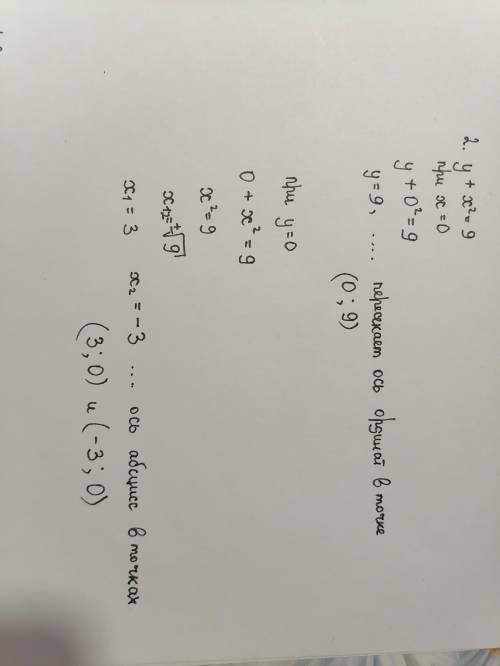 2. y + x² = 9
при x = 0
y + 0² = 9
y = 9, .... пересекает ось ординат в точке
(0 ; 9)
при y = 0
0 + x² = 9
x² = 9
x₁,₂ = ±√9
x₁ = 3 x₂ = -3 ... ось абсцисс в точках
(3 ; 0) и (-3 ; 0)